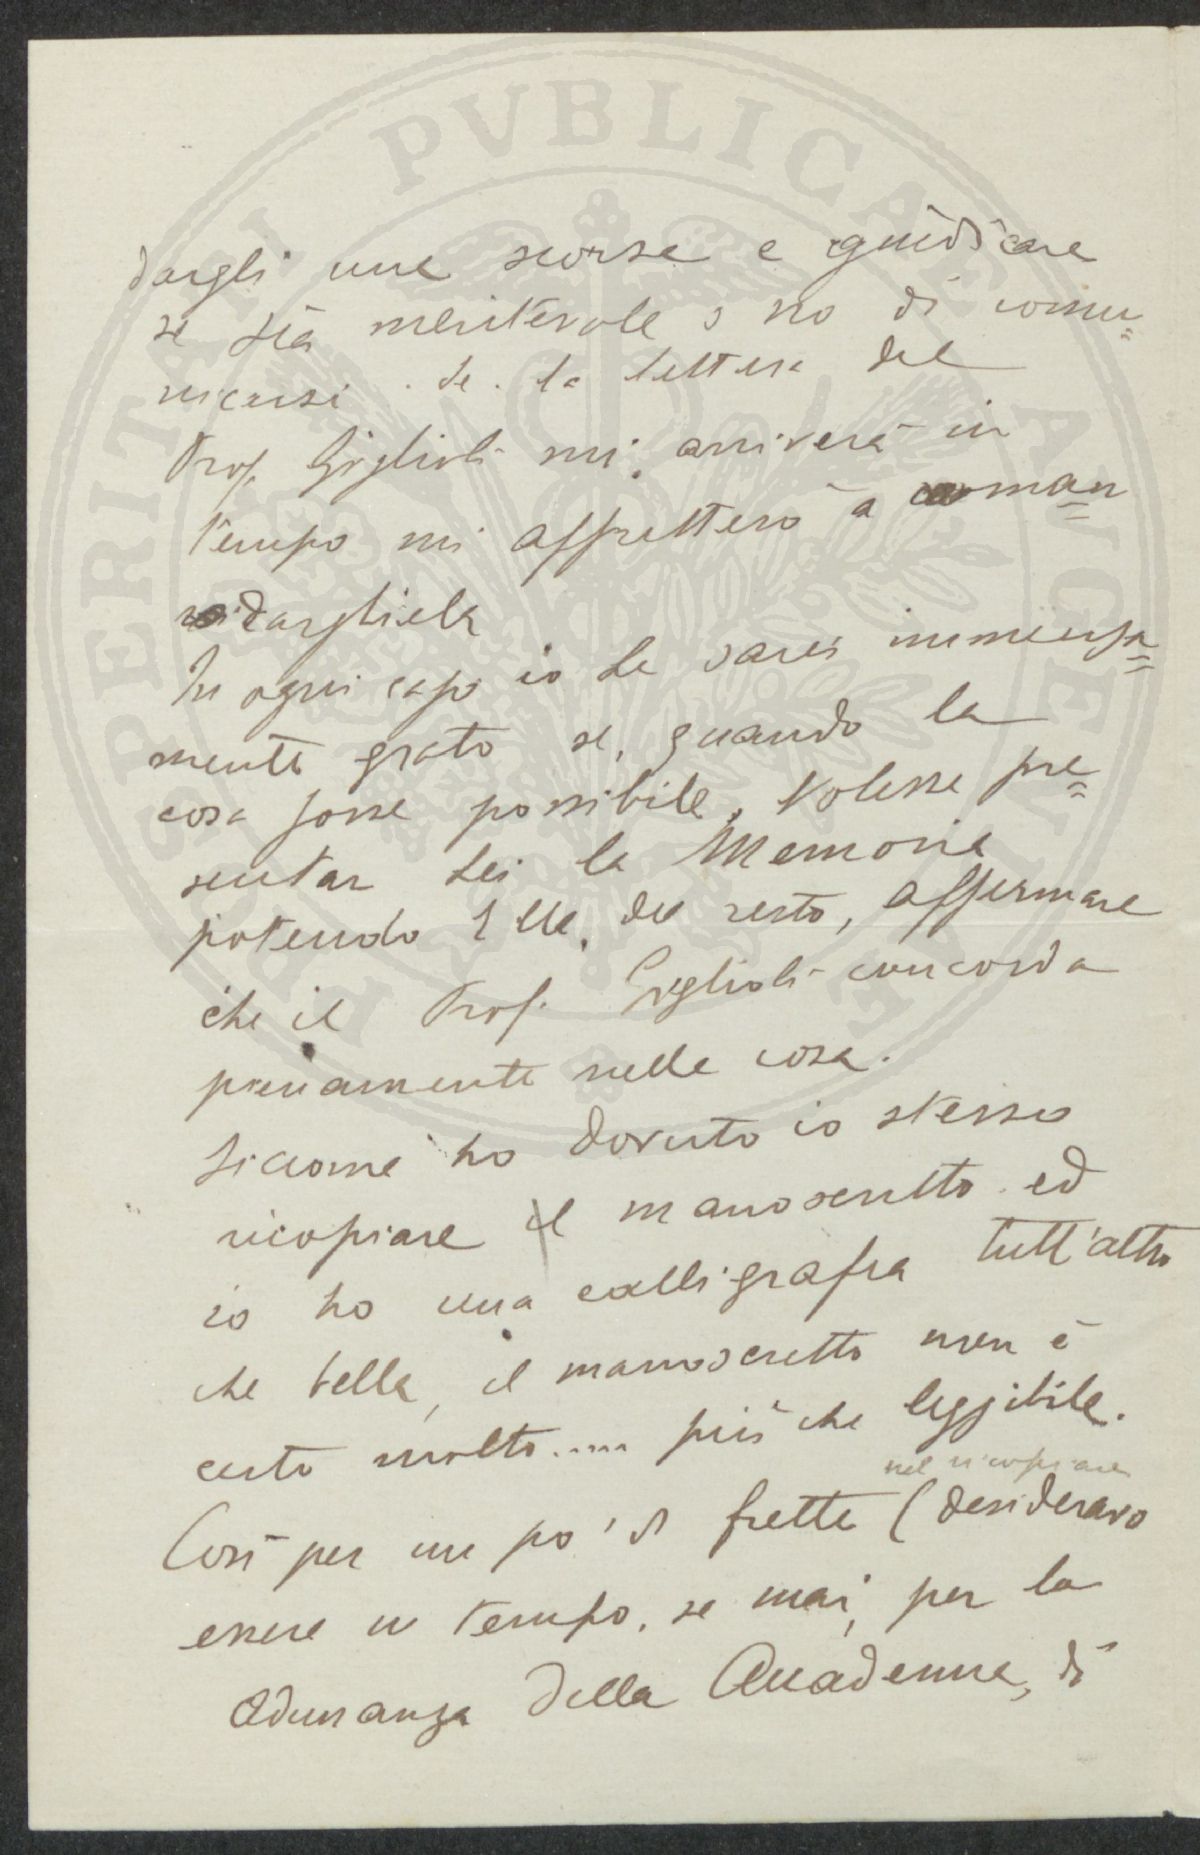 dargli una scorsa e giudicare
se sia meritevole o no di comu=
nicarsi. Se la lettera del
Prof. Giglioli mi arriverà in
tempo mi affretterò a man=
dargliela
In ogni caso io Le sarei immensa=
mente grato se, quando la
cosa fosse possibile, volesse pre=
sentar Lei la Memoria
potendo Ella, del resto, affermare
che il Prof. Giglioli concorda
pienamente nella cosa.
Siccome ho dovuto io stesso
ricopiare il manoscritto ed
io ho una calligrafia tutt'altro
che bella, il manoscritto non è
certo molto..... più che leggibile.
nel ricopiare
Così per un po' di fretta (desideravo
essere in tempo, se mai, per la
Adunanza della Accademia, di
PVBLICAE
PROSPERITATI
AVGENDAE